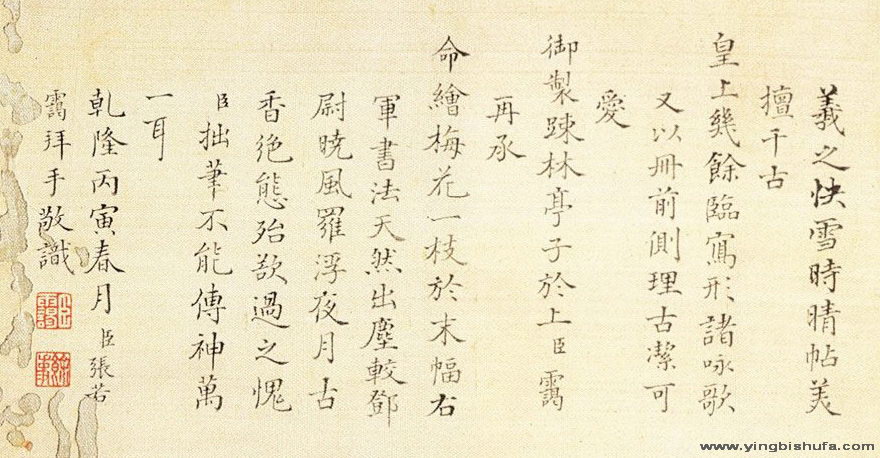 羲之快雪時晴帖美
擅千古
皇上幾餘臨寫形諸咏歌
又以冊前側理古潔可
愛
御製踈林亭子於上臣靄
再承
命繪梅花一枝於末幅右
軍書法天然出塵較鄧
尉曉風羅浮夜月古
香絶態殆欲過之愧
臣拙筆不能傳神萬
一耳
乾隆丙寅春月臣張若
靄拜手敬識
www.yingbishufa.com